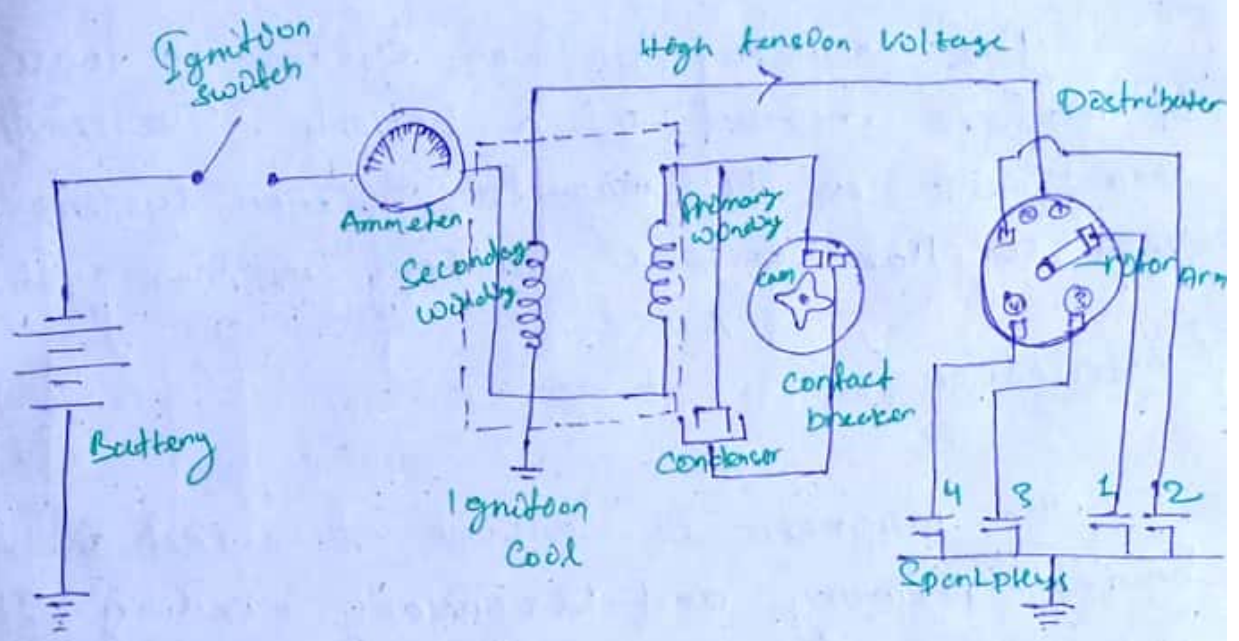 Ignition
switch
High tension Voltage
Distributer
Ammeter
Secondary
winding
Primary
winding
cam
rotor Arm
Contact
breaker
Condenser
Battery
Ignition
Coil
4
3
4 3 1 2
Sparkplugs